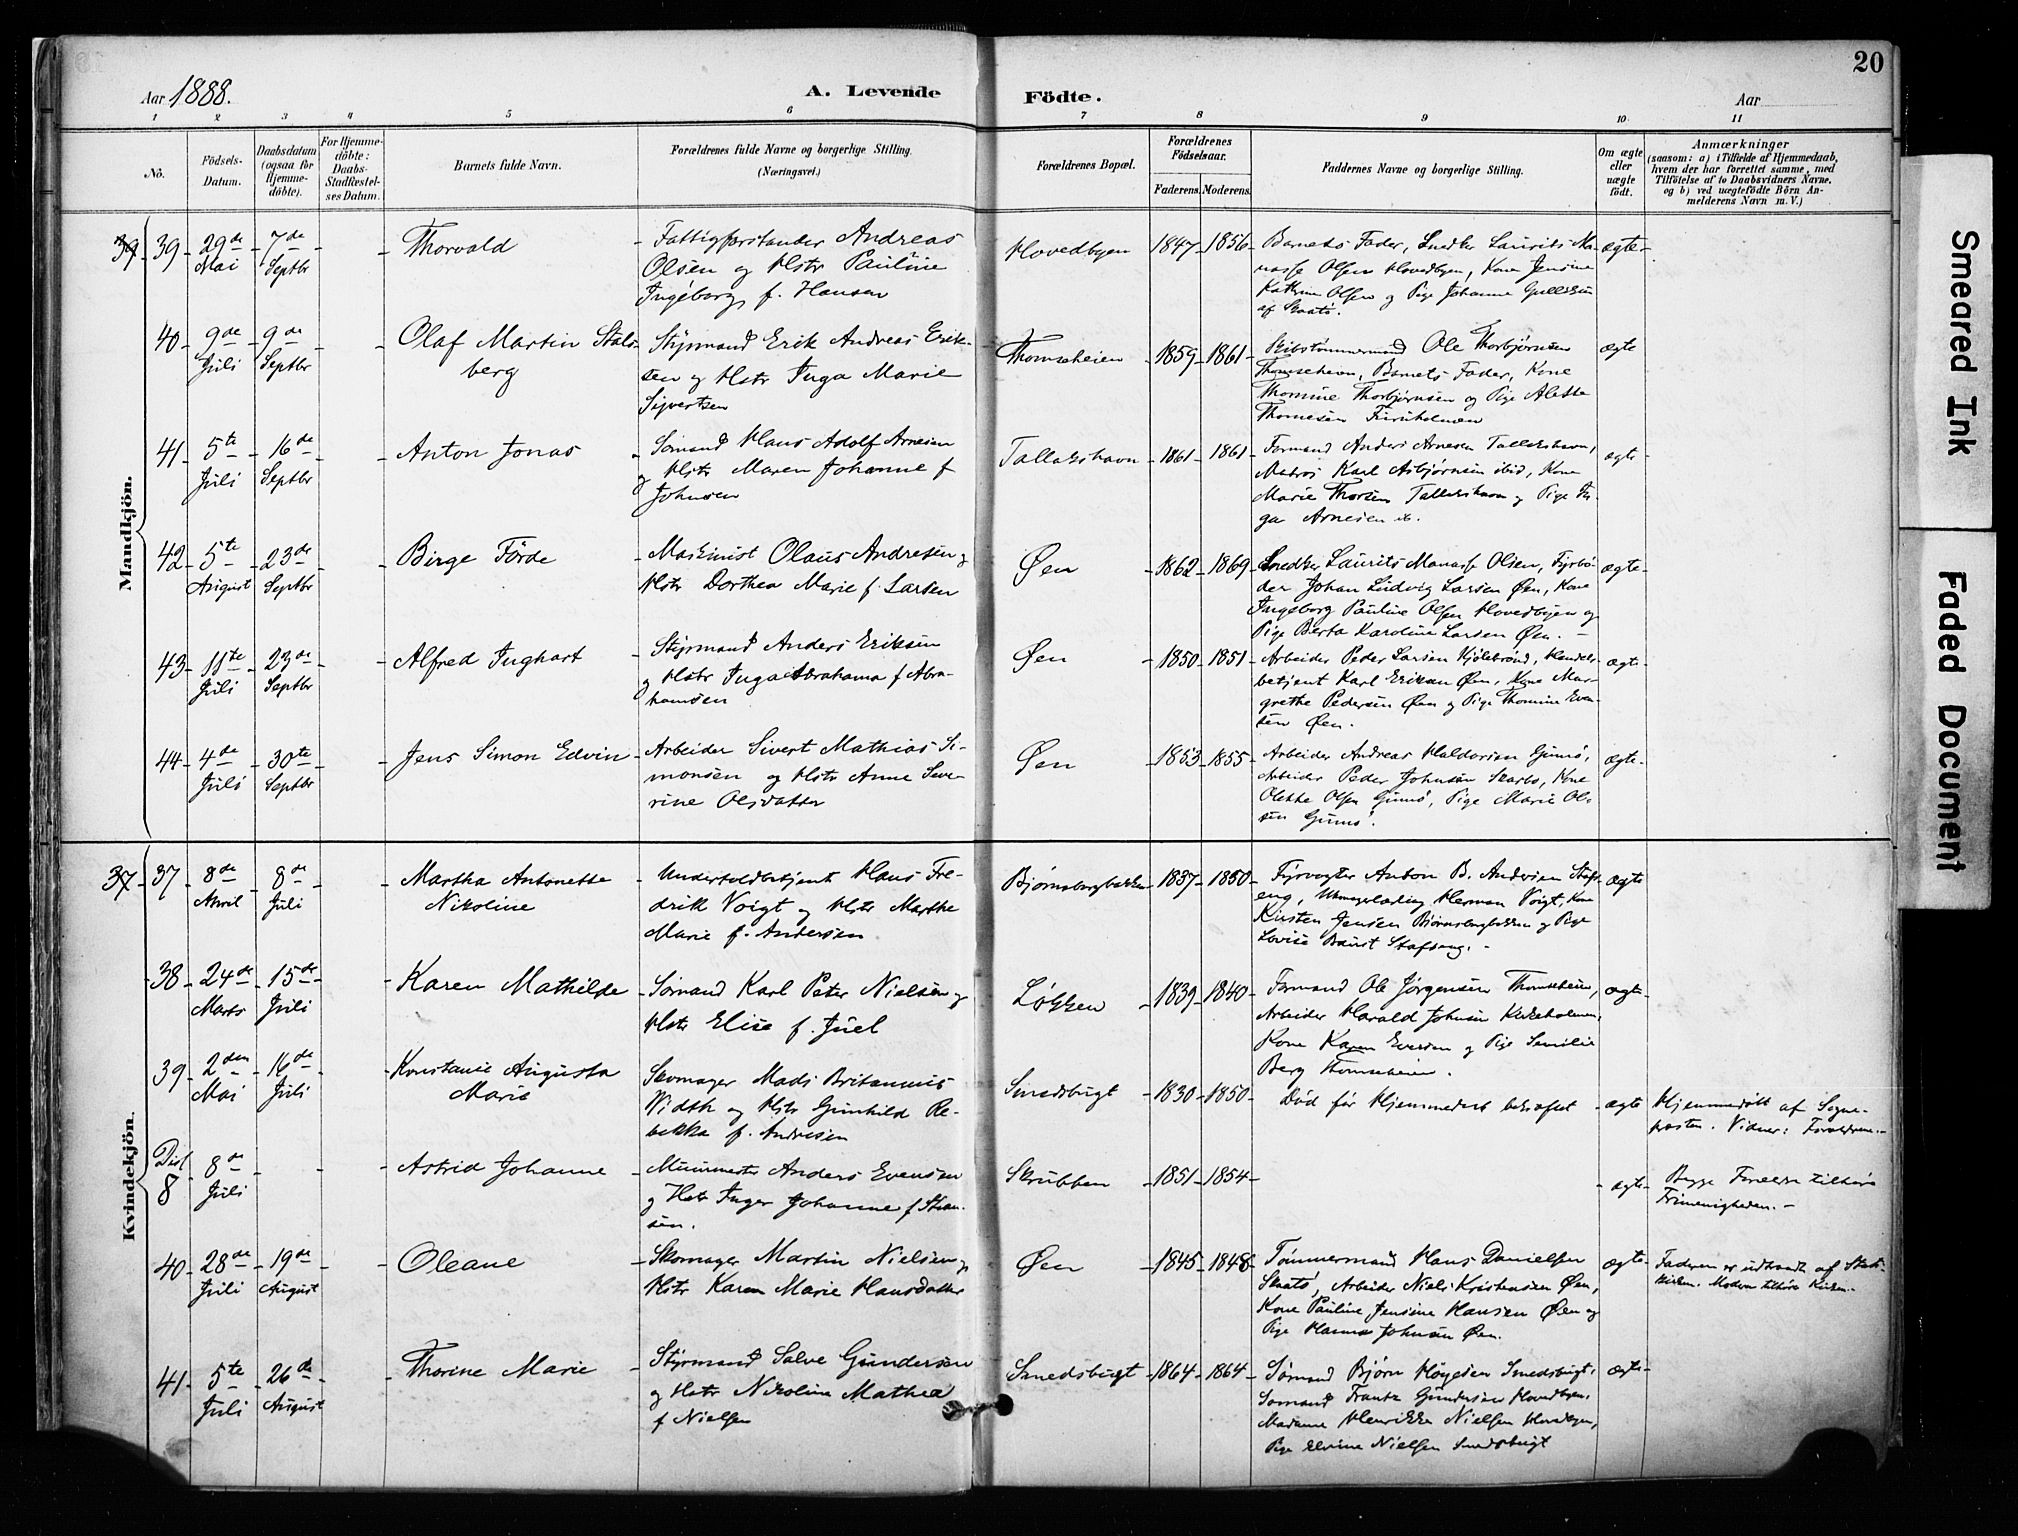 20
Aar 1888.
A. Levende Födte.
Aar
1 2 3 4 5 6 7 8 9 10 11
No.
Födsels-Datum.
Daabsdatum (ogsaa for Hjemmedöbte).
For Hjemmedöbte: Daabs-Stadfæstelses Datum.
Barnets fulde Navn.
Forældrenes fulde Navne og borgerlige Stilling. (Næringsvei.)
Forældrenes Bopæl.
Forældrenes Födselsaar.
Faderens. Moderens.
Faddernes Navne og borgerlige Stilling.
Om ægte eller uægte födt.
Anmærkninger
(saasom: a) i Tilfælde af Hjemmedaab, hvem der har forrettet samme, med Tilföielse af to Daabsvidners Navne, og b) ved uægtefödte Börn Anmelderens Navn m. V.)
Mandkjön.
39 39 29de Mai 7de Septbr
Thorvald
Fattigforstander Andreas
Olsen og Hstr Pauline
Ingeborg f. Hansen
Hovedbyen 1847 1856
Barnets Fader, Snedker Laurits Ma-
nasse Olsen Hovedbyen, Kone Jensine
Kathrine Olsen og Pige Johanne
af Skaatö.
ægte
40 9de Juli 9de Septbr
Olaf Martin Stals-
berg
Styrmand Erik Andreas Erik-
sen og Hstr Inga Marie
Sivertsen
Thomseheien 1859 1861
Skibstømmermand Ole Thorbjørnsen
Barnets Fader, Kone
Thomine Thorbjørnsen og Pige Alette
Thomesen
ægte
41 5te Juli 16de Septbr
Anton Jonas
Sømand Hans Adolf Arnesen
og Hstr Maren Johanne f
Johnsen
Tallakshavn 1861 1861
Formand Anders Arnesen Tallakshavn,
Matros Karl Asbjørnsen ibid, Kone
Marie Thorsen Tallakshavn og Pige In-
ga Arnesen ib.
ægte
42 5te August 23de Septbr
Birge Förde
Maskinist Olaus Andresen og
Hstr Dorthea Marie f. Larsen
Øen 1862 1869
Snedker Laurits Manasse Olsen, Fyrbø-
der Johan Ludvig Larsen Øen, Kone
Ingeborg Pauline Olsen Hovedbyen og
Pige Berta Karoline Larsen Øen.
ægte
43 11te Juli 23de Septbr
Alfred Inghart
Styrmand Anders Eriksen
og Hstr Inga Abrahama f Abra-
hamsen
Øen 1850 1851
Arbeider Peder Larsen Kjølebrønd, Handels-
betjent Karl Eriksen Øen, Kone Mar-
grethe Pedersen Øen og Pige Thomine Even-
sen Øen.
ægte
44 4de Juli 30te Septbr
Jens Simon Edvin
Arbeider Sivert Mathias Si-
monsen og Hstr Anne Seve-
rine Olsdatter
Øen 1853 1855
Arbeider Andreas Haldorsen Gumö,
Arbeider Peder Johnsen Skarbo, Kone
Olette Olsen Gumö, Pige Marie Ol-
sen Gumö.
ægte
Kvindekjön.
37 37 8de April 8de Juli
Martha Antonette
Nikoline
Undertoldbetjent Hans Fre-
drik Voigt og Hstr Marthe
Marie f. Andersen
Bjørnsbergbakken 1837 1850
Fyrvogter Anton B. Andersen Staf-
eng, Herman Voigt, Kone
Kirsten Jensen Bjørnsbergbakken og Pige
Lovise Stafseng.
ægte
38 24de Marts 15de Juli
Karen Mathilde
Sømand Karl Peter Nielsen og
Hstr Elise f. Juel
Løkken 1839 1840
Formand Ole Jørgensen Thomseheien,
Arbeider Harald Johnsen Kirkeholmen,
Kone Karen Eversen og Pige
Berg Thomseheien.
ægte
39 2den Mai 16de Juli
Konstanse Augusta
Marie
Skomager Mads Britannus
Vidth og Hstr Gunhild Re-
bekka f. Andresen
Smedsbugt 1830 1850
Død før Hjemmedaab bekræftet
ægte
Hjemmedøbt af Sogne-
præsten. Vidner: Forældrene.
Dis
8 8de Juli
Astrid Johanne
Murmester Anders Evensen
og Hstr Inger Johanne f
sen.
Skrubben 1851 1854
ægte
Begge Foreldre tilhøre
Frimenigheden.
40 28de Juli 19de August
Oleane
Skomager Martin Nielsen og
Hstr Karen Marie Hansdatter
Øen 1845 1848
Tømmermand Hans Danielsen
Skaatö, Arbeider Niels Kristensen Øen,
Kone Pauline Jensine Hansen Øen og
Pige Hanna Johnsen Øen.
ægte
Faderen er udtraadt af Stats-
kirken. Moderen tilhører Kirken.
41 5te Juli 26de August
Thorine Marie
Styrmand Salve Gundersen
og Hstr Nikoline Mathea
f Nielsen
Smedsbugt 1864 1864
Sømand Bjørn Høgesen Smedsbugt,
Sømand Frantz Gundersen Hovedbyen,
Madame Henrikke Nielsen Hovedbyen,
Pige Elvine Nielsen Smedsbugt
ægte
Smeared Ink
Faded Document